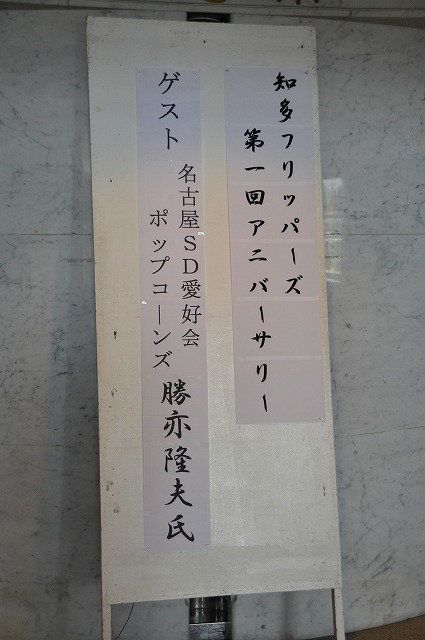 知多フリッパーズ
第一回アニバーサリー
ゲスト
名古屋SD愛好会
ポップコーンズ
勝亦隆夫氏